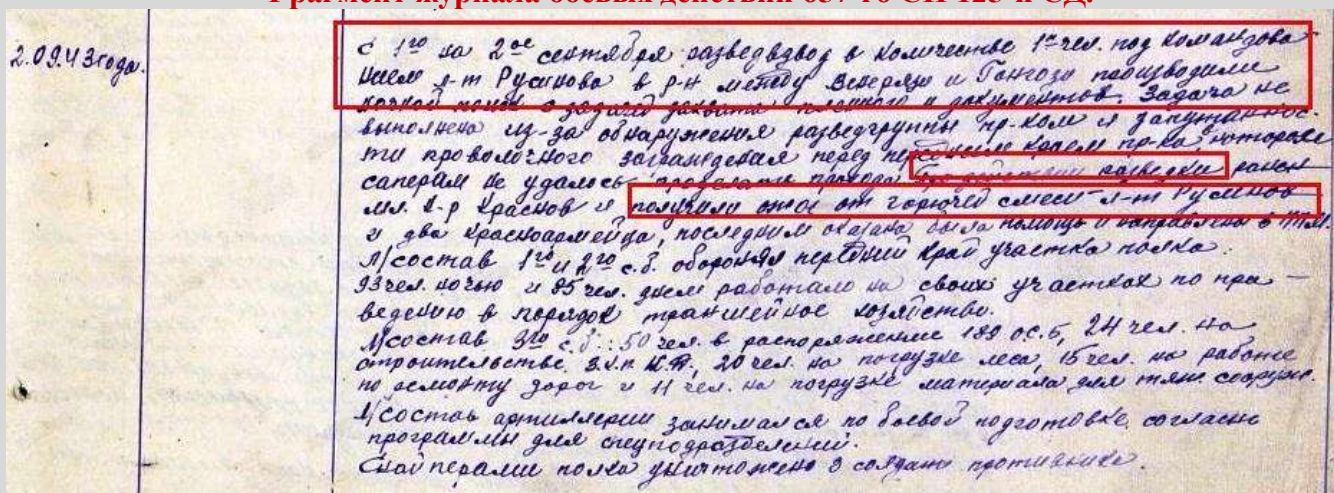 Фрагмент журнала боевых действий 657-го СП 125-й СД.
2.09.43 года.
с 1го на 2ое сентября разведвзвод в количестве чел. под командова-
нием л-т Русинова в р-н между Венерязи и Гонгози производили
ночной поиск с задачей захвата пленного и документов. Задача не
выполнена из-за обнаружения разведгруппы пр-ком и запутаннос-
ти проволочного заграждения перед передним краем пр-ка, которое
саперам не удалось проделать прохода. разведки ранен
мл. к-р Краснов и получили ожог от горючей смеси л-т Русинов
и два красноармейца, последним оказана была помощь и направлены в
Л/состав 1го и 2го с.б. оборонял передний край участка полка.
93 чел. ночью и 85 чел. днем работало на своих участках по при-
ведению в порядок траншейное хозяйство.
Л/состав 3го с.б.: 50 чел. в распоряжение 189 ос.б, 24 чел. на
строительстве 20 чел. на погрузке леса, 15 чел. на работе
по ремонту дорог и 11 чел. на погрузке материала для сооруж.
Л/состав артиллерии занимался по боевой подготовке, согласно
программы для спецподразделений.
Снайперами полка уничтожено 3 солдат противника.